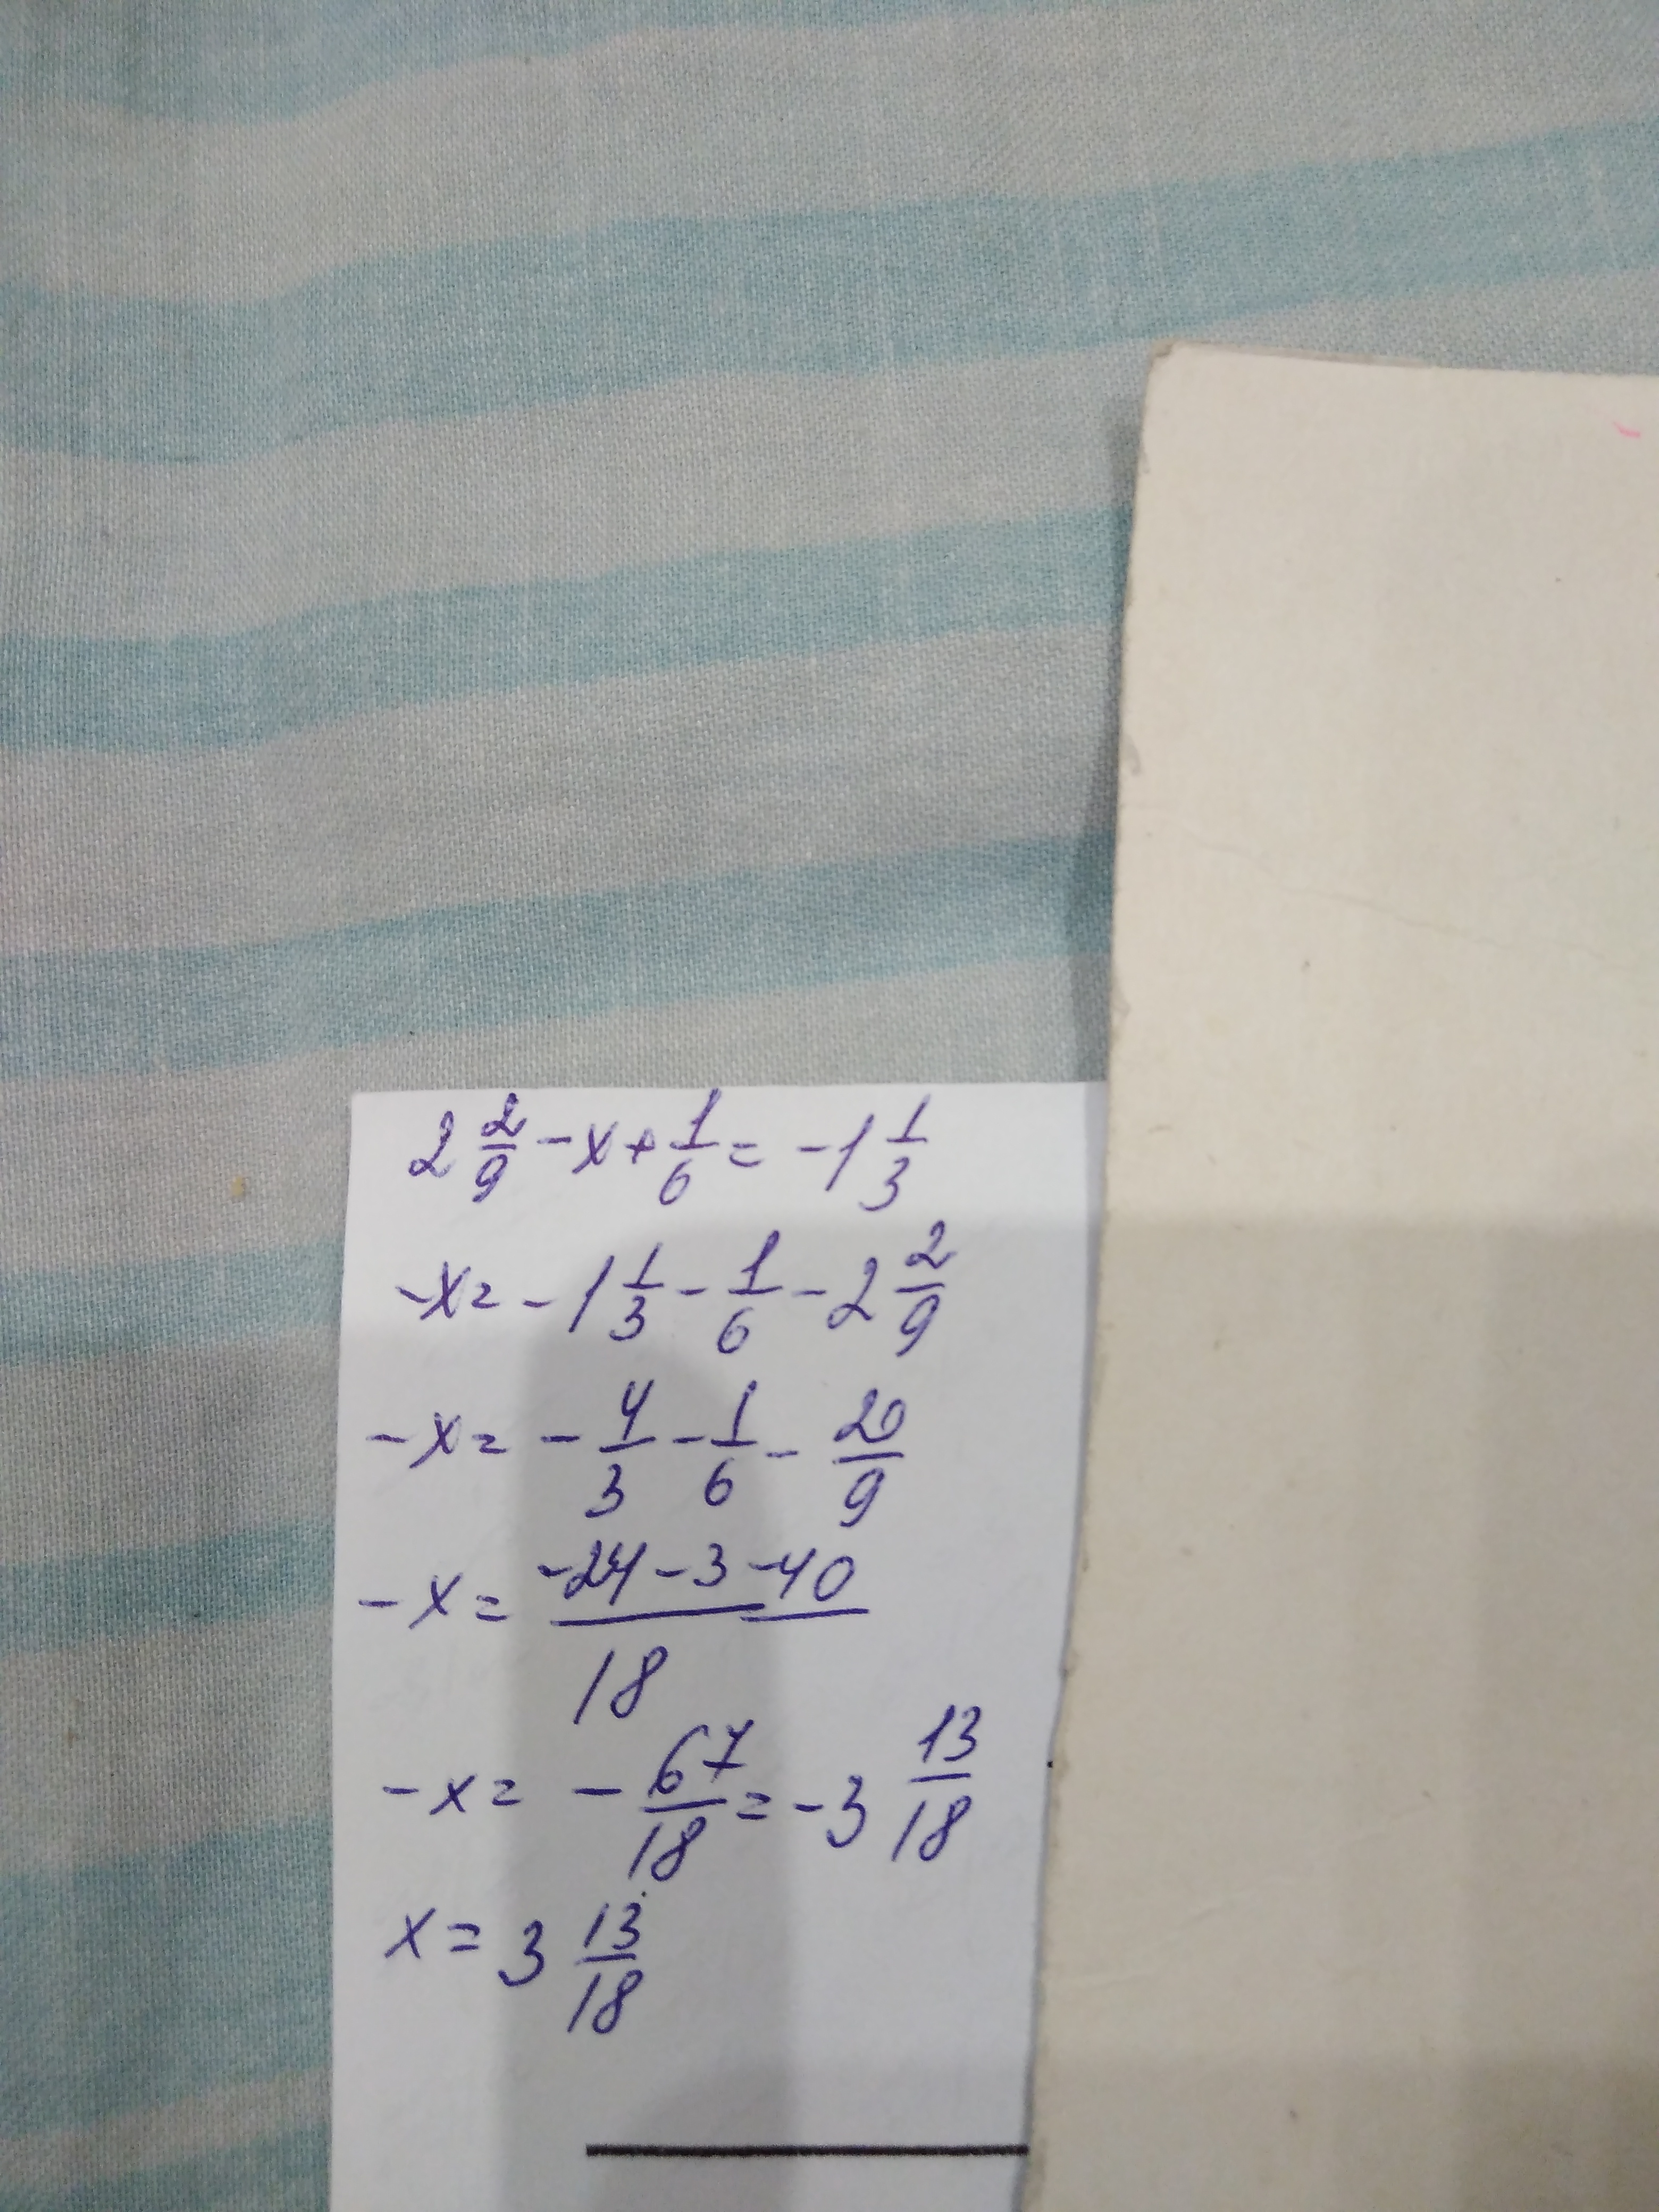 2 2/9 - x + 1/6 = -1 1/3
-x = -1 1/3 - 1/6 - 2 2/9
-x = - 4/3 - 1/6 - 20/9
-x = -24 - 3 - 40 / 18
-x = - 67/18 = -3 13/18
x = 3 13/18